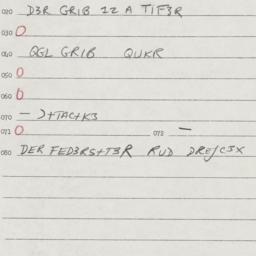 020 D3R GRIB 12 A TIF3R
030 0
040 QGL GRIB QUKR
050 0
060 0
070 — )+TAC+K3
071 0 072 —
080 DER FED3RS+T3R RUD DRE/C3X